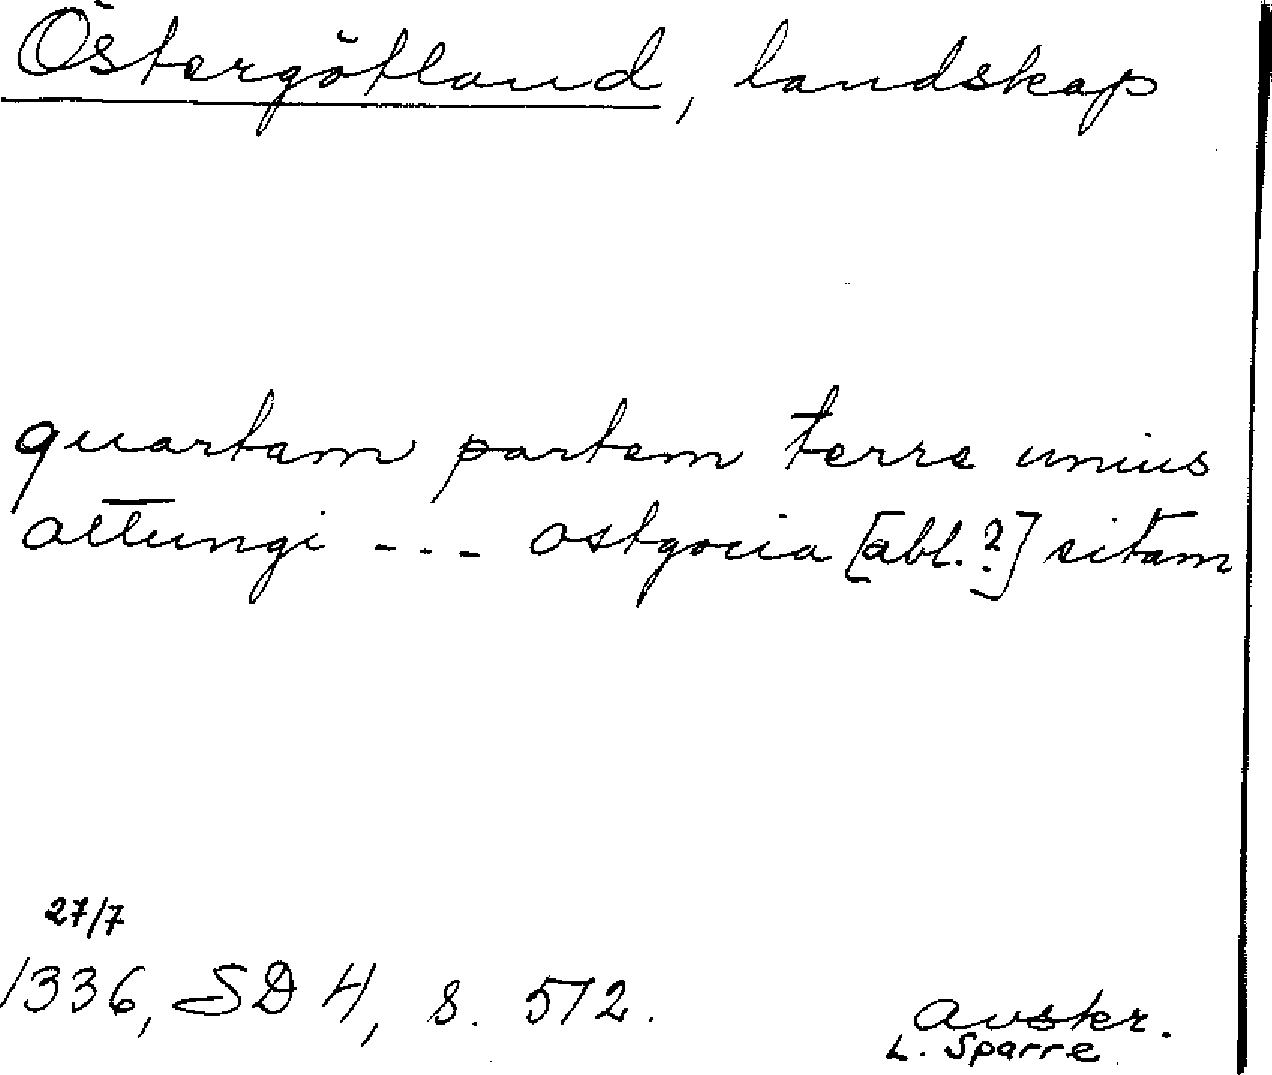 Östergötland, landskap
quartam partem terre unius
attungi --- ostgocia [abl.?] sitam
27/7
1336, SD 4, s. 572.
avskr.
L. Sparre